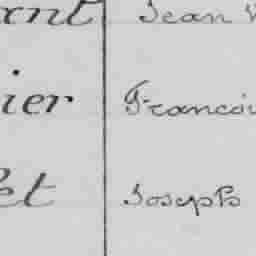 ant Jean
ier Francoi
et Joseph